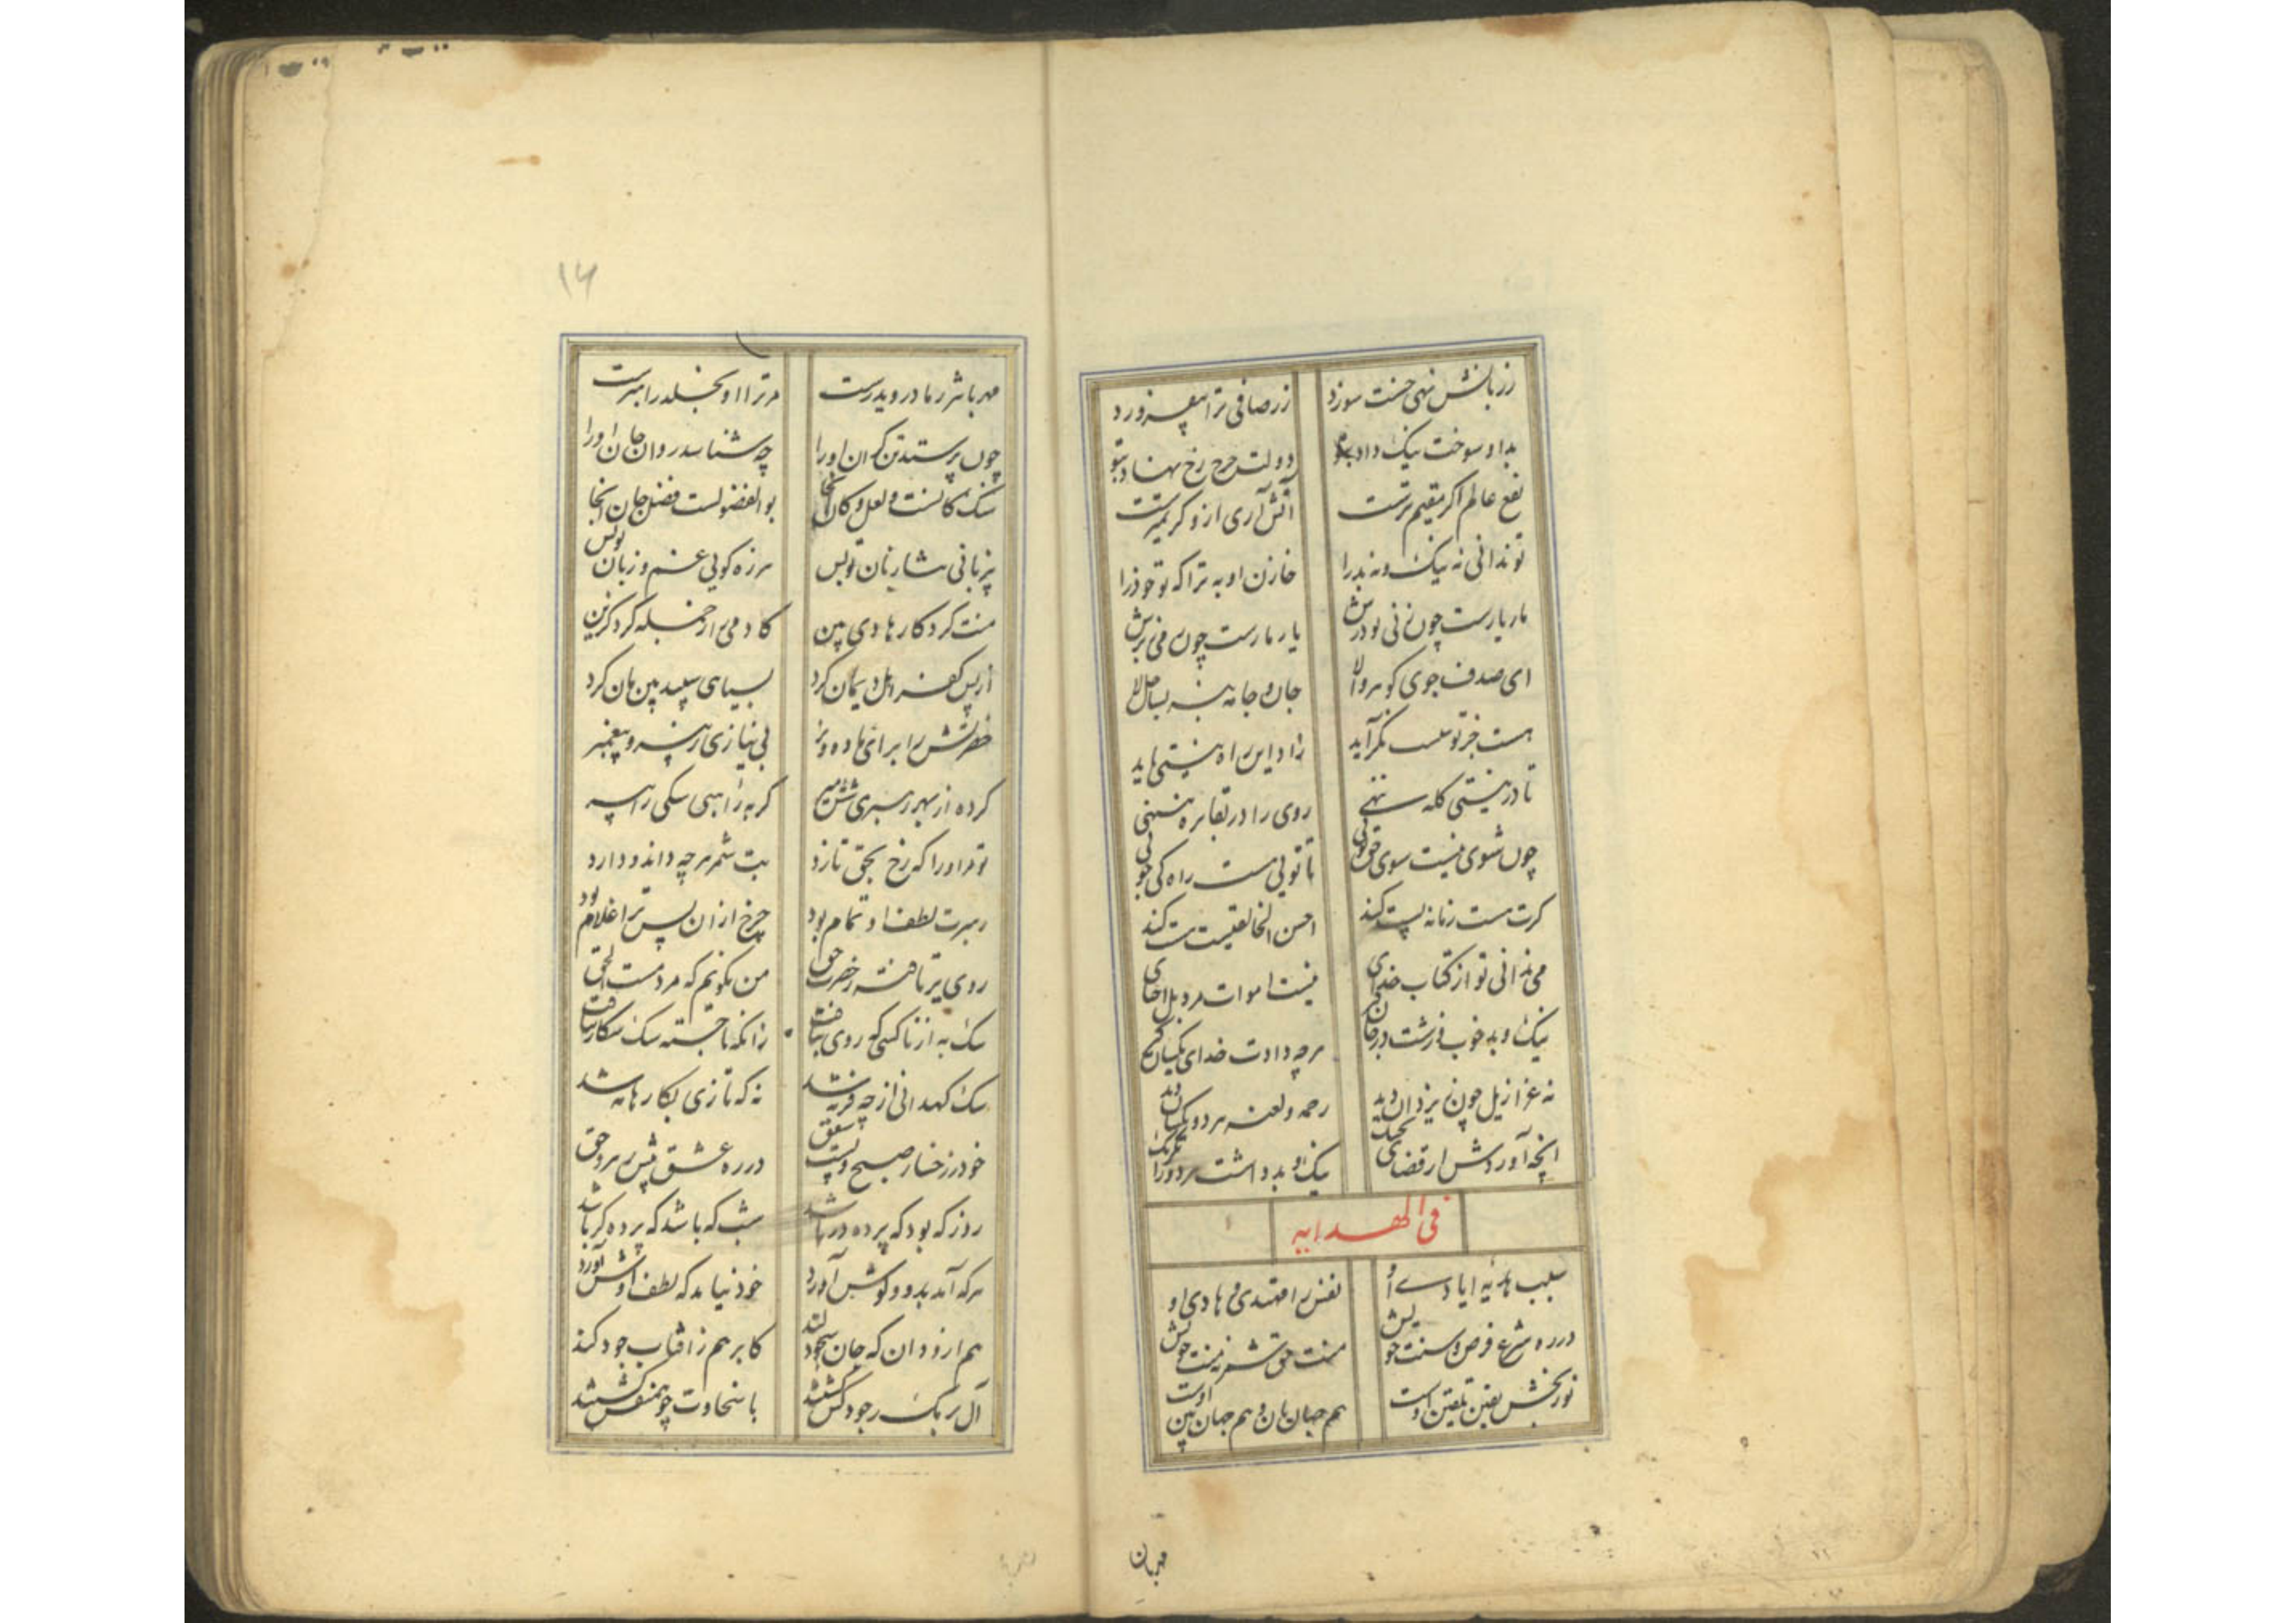 زر بآتش نهی خبث سوزد
زر صافی ترا بیفروزد
بد او سوخت نیک داد برو
دولتی چرخ رخ نهاد بتو
نفع عالم اگر مقیم ترست
آتش آری ازو کریمترست
تو ندانی نه نیک و نه بد را
خازن او به ترا که تو خود را
مار یارست چون نی بو درش
یار مارست چون می برش
ای صدف جوی گوهر والا
جان و جامه بنه بساحل لا
هست جز تو نیست نگراید
زاد این راه نیستی باید
تا در نیستی کله ننهی
روی را در بقا بره ننهی
چون شوی نیست سوی حق پویی
تا تویی هست راه کی جویی
گرت هست زمانه پست کند
احسن الخالقینت هست کند
می ندانی تو از کتاب خدای
نیست اموات مرد بل احیای
نیک و بد خوب و زشت در جان
هرچه دادت خدای یکسان
نه عزازیل چون ز یزدان دید
رحمه و لعنه هر دو یکسان دید
آنچه آوردش از قضای
نیک و بد داشت هر دو را
فی الهدایه
سبب هدیه ایادی او
نفس را مهتدی و هادی او
در ره شرع و فرض و سنت خویش
منت حق شمر نه منت خویش
نوربخش یقین تلقین اوست
هم جهان بان و هم جهان بین اوست
مهربان
۱۴
مهربانتر ز مادر و پدرست
مر ترا او بخلد راهبرست
چون پرستد تن گران او را
چه شناسد روان جان او را
سنگ کانست و لعل و کان آنجا
بوالفضولست فضل جان آنجا
بی زبانی نثار زبان تو بس
هرزه گویی غم و زبان تو بس
منت کردگار هادی بین
کادمی را ز جمله کرد گزین
از پس کفر اهل ایمان کرد
بسیاهی سپید بین هان کرد
حضرتش را برای ماده و نر
بی نیازی ز پیر و پیغمبر
کرده از بهر رهبری شش میر
گربه راهبی سگی راهبه
تو مر او را که رخ بحق نازد
بت شمر هرچه داند و دارد
رهبرت لطف او تمام بود
چرخ از آن پس ترا غلام بود
روی برتافته ز حضرت حق
من نگویم که مردمست الحق
سگ به از ناکسی که روی بتافت
زانکه ناجسته سگ شکار نیافت
سگ کهدانی ارچه فربه شد
نه که تازی بکارها به شد
خود رخسار صبح و پشت شفق
در ره عشق پیش رهرو حق
روز که بود که پرده در باشد
شب که باشد که پرده گر باشد
هرکه آمد بدو و گوش آورد
خود نیامد که لطف اوش آورد
هم ازو دان که جان سجود کند
کابر هم ز آفتاب جود کند
آل برمک ز جود کش گشتند
با سخاوت چو همنفس گشتند